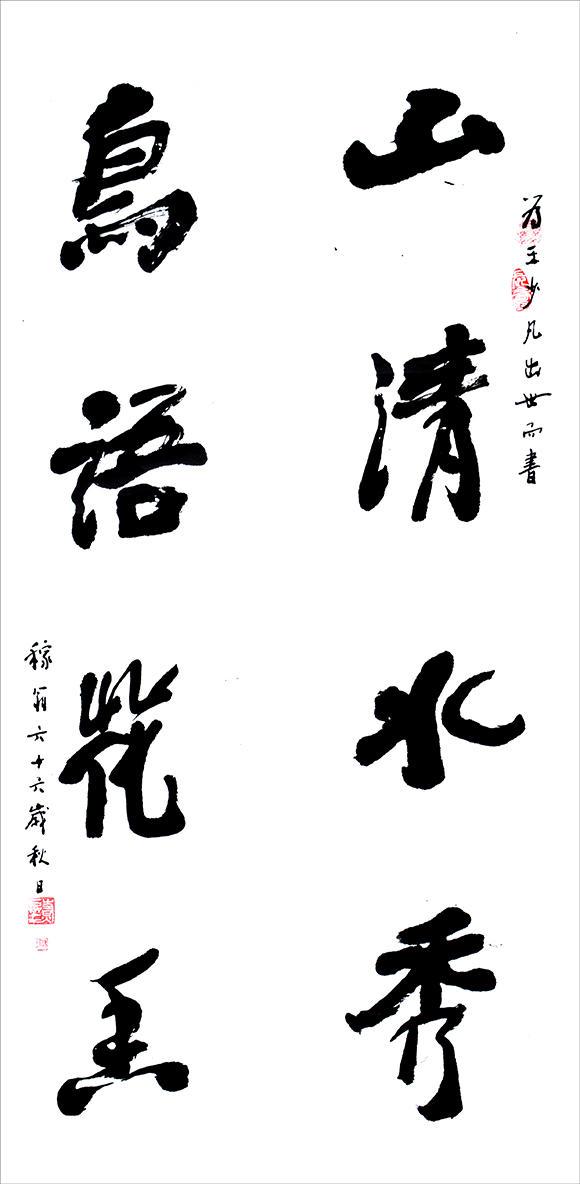 為王少凡出世而書
山清水秀
鳥語花香
稼翁六十六歲秋日